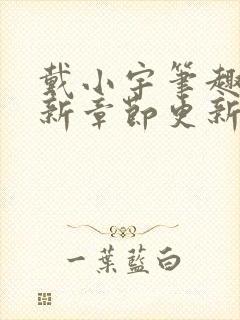 戴小宇筆趣
新章節更新
一葉藍白